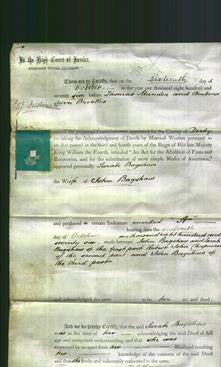 In the High Court of Justice.
COMMON PLEAS
These are to Certify, that on the Sixteenth day of
October in the year one thousand eight hundred and
seventy six before Thomas Mander and Ambrose
Owen Brookes
Commissioners appointed for the County of Derby
for taking the Acknowledgment of Deeds by Married Women pursuant to
an Act passed in the third and fourth years of the Reign of His late Majesty
King William the Fourth, intituled "An Act for the Abolition of Fines and
Recoveries, and for the substitution of more simple Modes of Assurance,"
appeared personally Sarah Bagshaw
the Wife of John Bagshaw
and produced a certain Indenture marked A
bearing date the sixteenth
day of October one thousand eight hundred and
seventy six made between John Bagshaw and Sarah
Bagshaw of the first part John
of the second part and John Bagshaw of
the third part
and acknowledged the same to be her act and deed;
And we do hereby certify, that the said Sarah Bagshaw
was at the time of her acknowledging the said Deed of full
age and competent understanding, and that she was
examined by us apart from her Husband touching
her knowledge of the contents of the said Deed
and that she freely and voluntarily consented to the same.